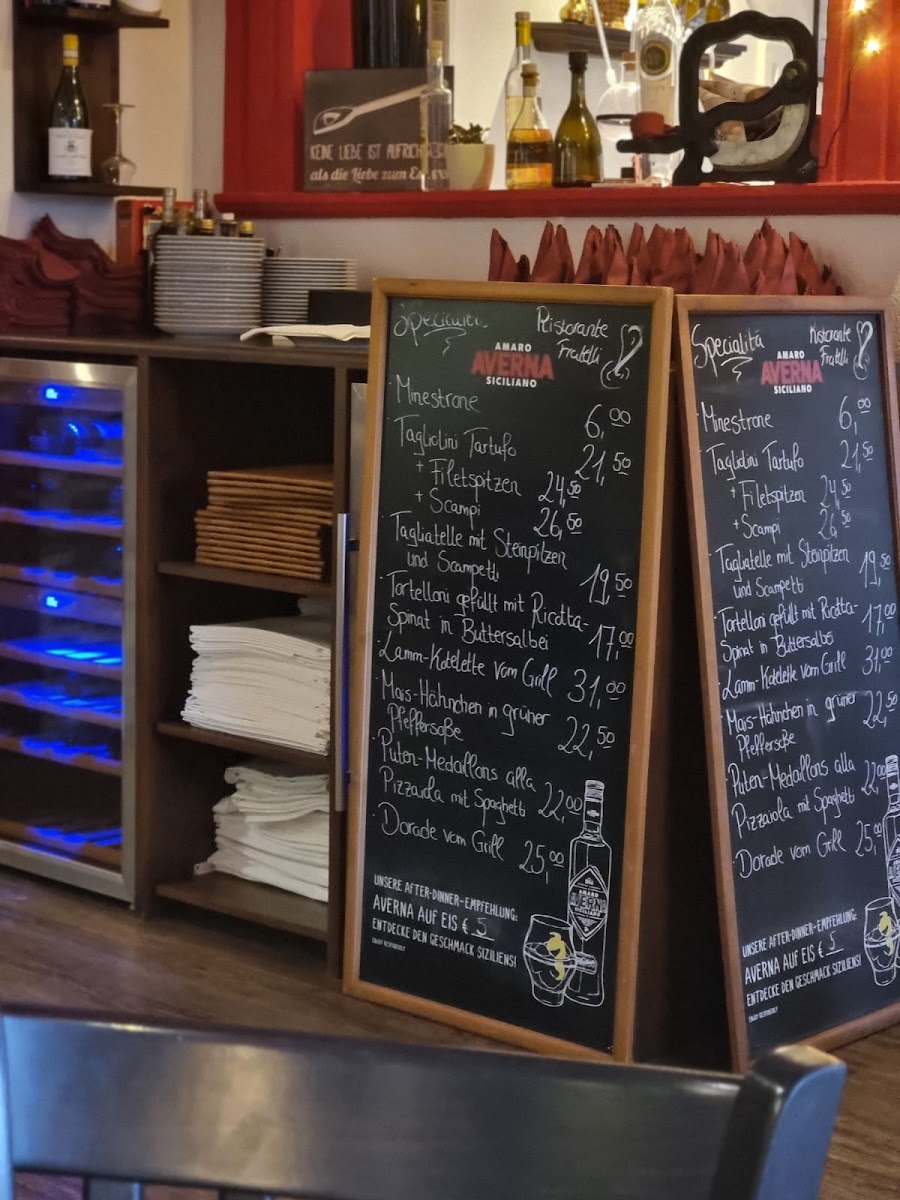 KEINE LIEBE IST AUFRICH
als die Liebe zum
Specialità
Ristorante
Fratelli
AMARO
AVERNA
SICILIANO
Minestrone 6,00
Tagliolini Tartufo 21,50
+ Filetspitzen 24,50
+ Scampi 26,50
Tagliatelle mit Steinpilzen
und Scampetti 19,50
Tortelloni gefüllt mit Ricotta-
Spinat in Buttersalbei 17,00
Lamm-Kotelette vom Grill 31,00
Mais-Hähnchen in grüner
Pfeffersoße 22,50
Puten-Medaillons alla
Pizzaiola mit Spaghetti 22,00
Dorade vom Grill 25,00
UNSERE AFTER-DINNER-EMPFEHLUNG:
AVERNA AUF EIS € 5
ENTDECKE DEN GESCHMACK SIZILIENS!
ENJOY RESPONSIBLY
AMARO
AVERNA
SICILIANO
Specialità
Ristorante
Fratelli
AMARO
AVERNA
SICILIANO
Minestrone 6,00
Tagliolini Tartufo 21,50
+ Filetspitzen 24,50
+ Scampi 26,50
Tagliatelle mit Steinpilzen
und Scampetti 19,50
Tortelloni gefüllt mit Ricotta-
Spinat in Buttersalbei 17,00
Lamm-Kotelette vom Grill 31,00
Mais-Hähnchen in grüner
Pfeffersoße 22,50
Puten-Medaillons alla
Pizzaiola mit Spaghetti 22,00
Dorade vom Grill 25,00
UNSERE AFTER-DINNER-EMPFEHLUNG:
AVERNA AUF EIS € 5
ENTDECKE DEN GESCHMACK SIZILIENS!
ENJOY RESPONSIBLY